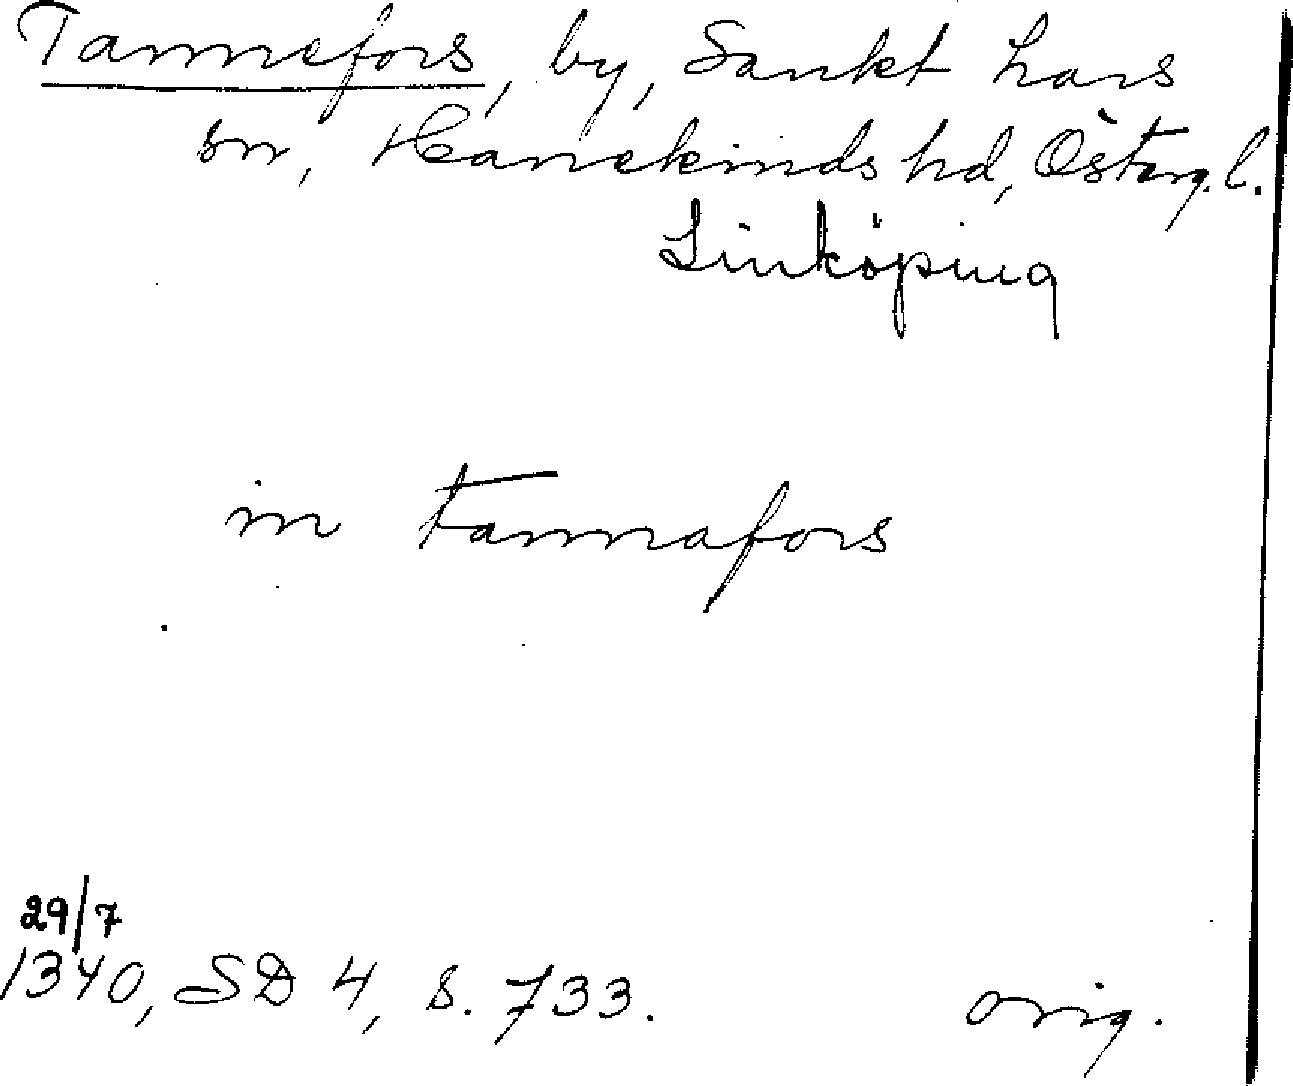 Tannefors, by, Sankt Lars
sn, Hanekinds hd, Österg. l.
Linköping
in tannafors
29/7
1340, SD 4, s. 733.
orig.